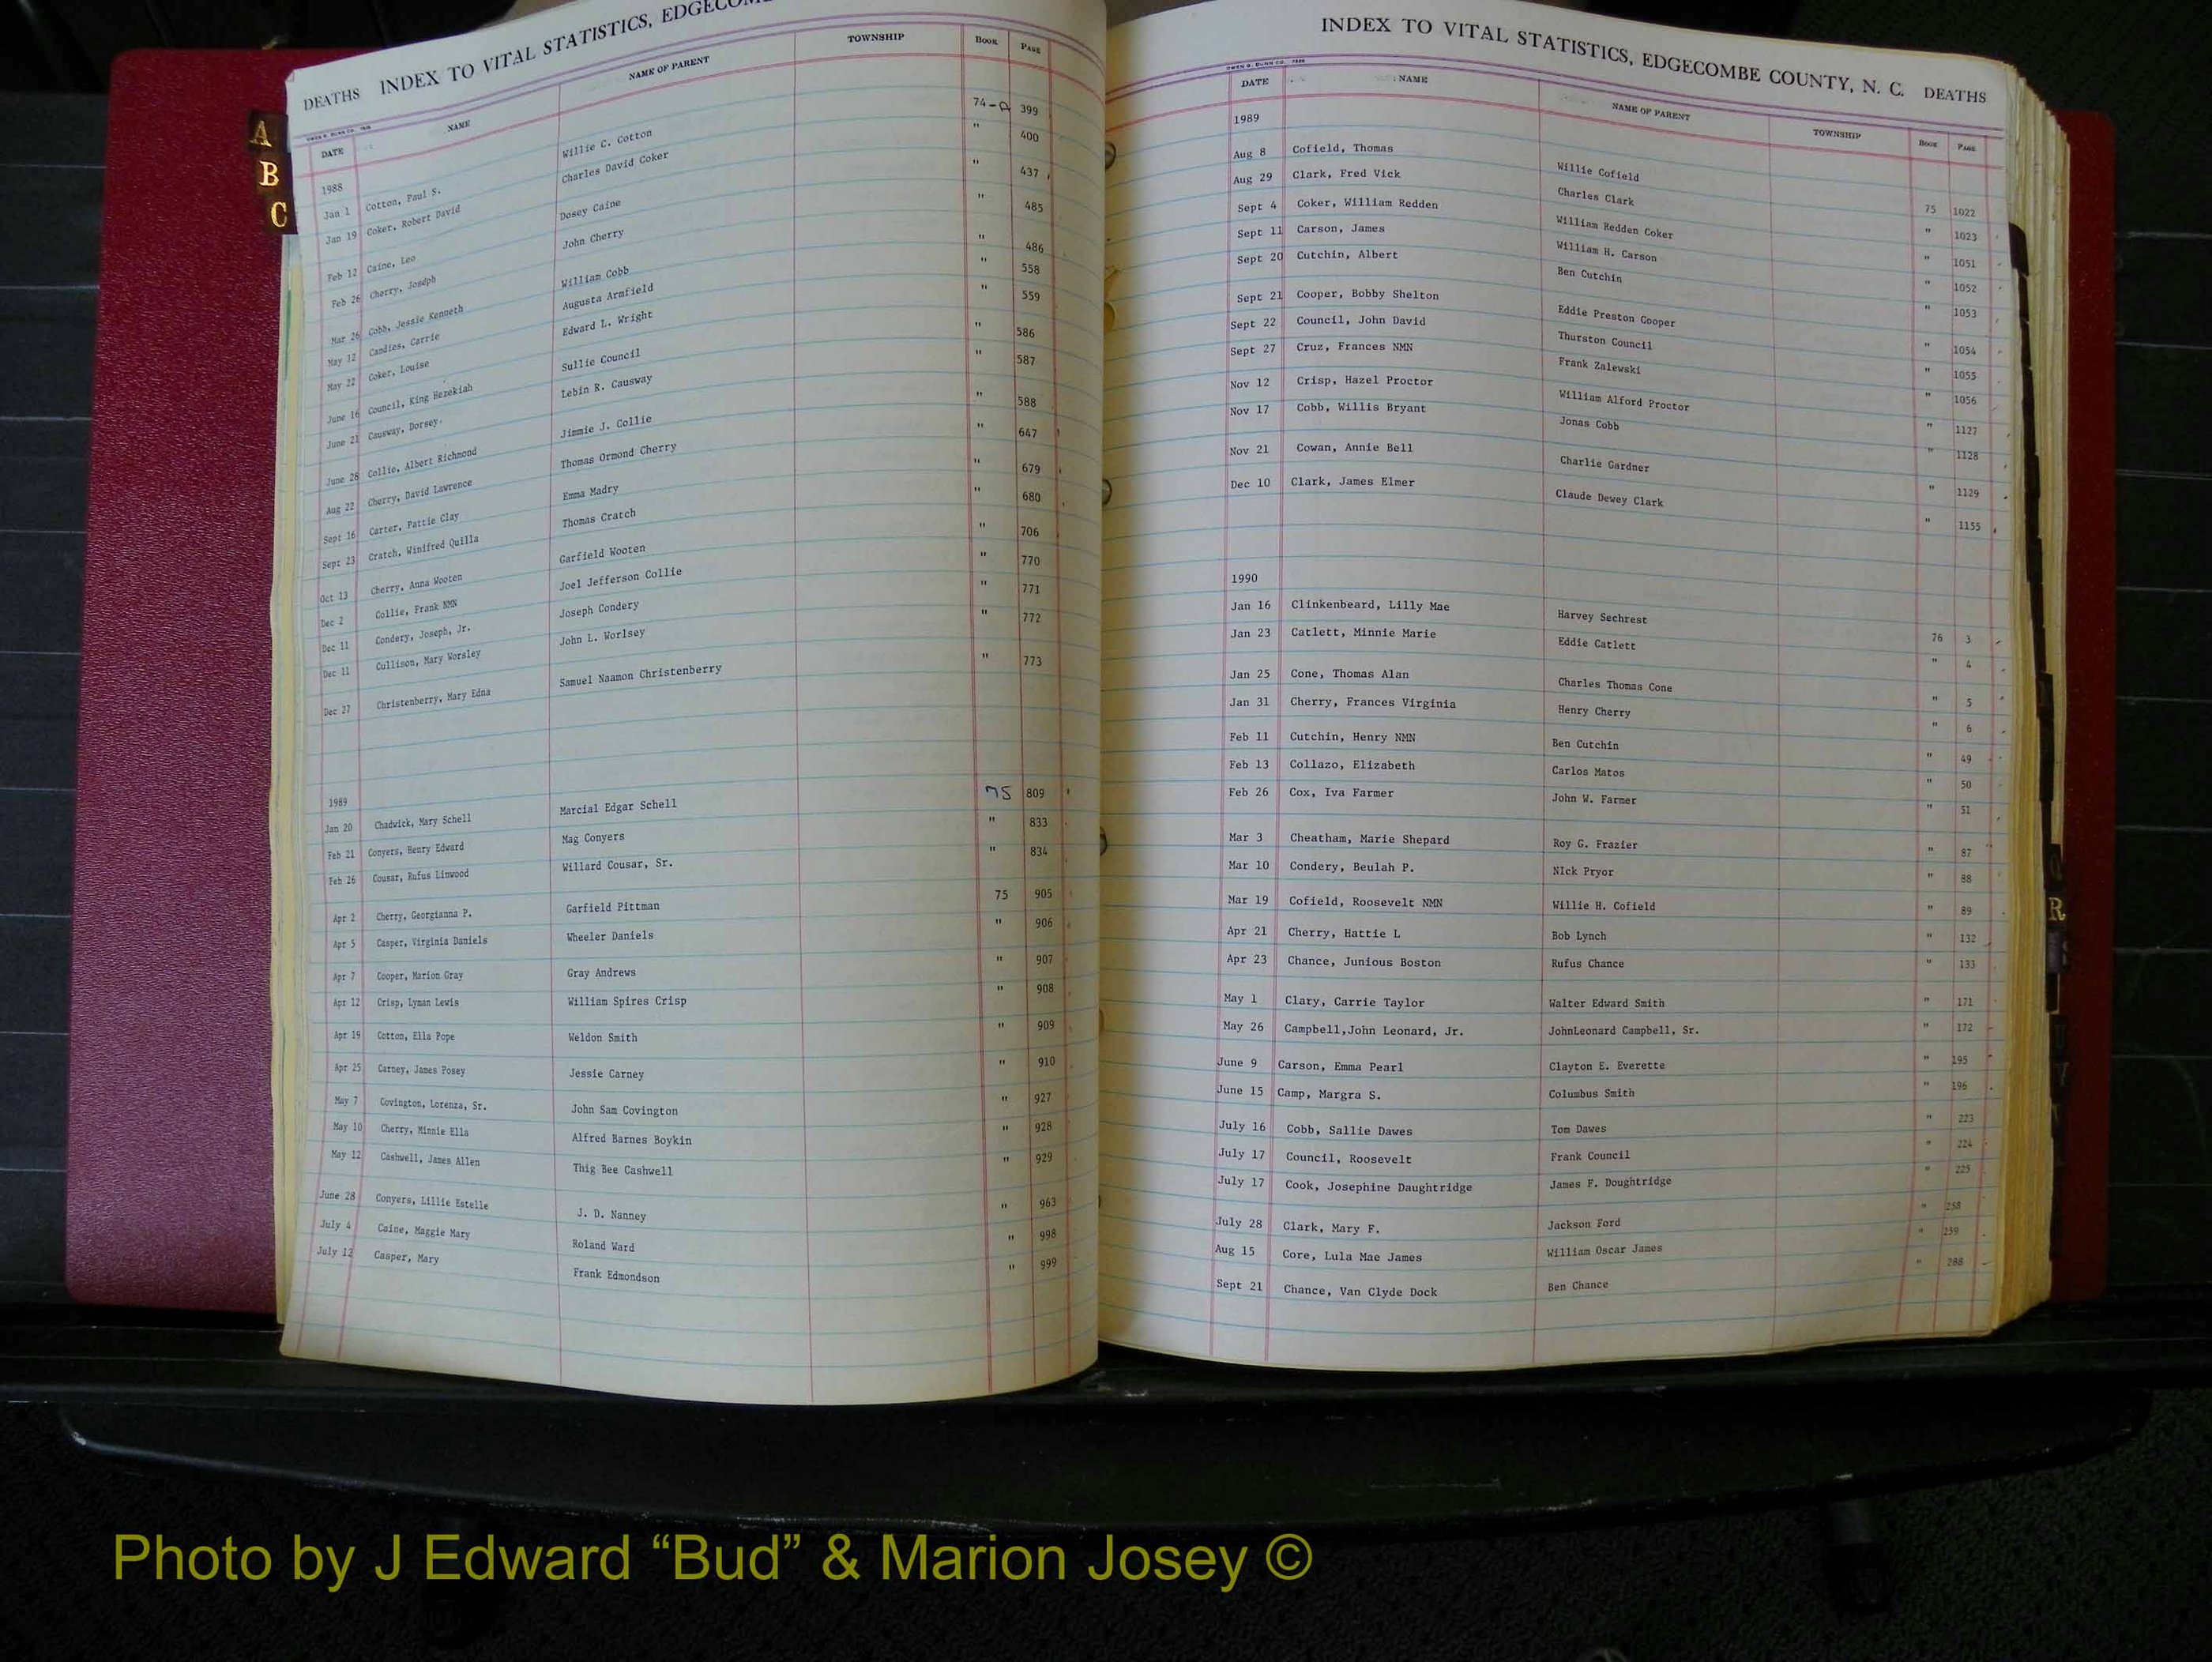 DEATHS INDEX TO VITAL STATISTICS,
NAME NAME OF PARENT TOWNSHIP BOOK PAGE
DATE
1988
Jan 1 Cotton, Paul S. Willie C. Cotton 74-A 399
Jan 19 Coker, Robert David Charles David Coker " 400
Feb 12 Caine, Leo Dosey Caine " 437
Feb 26 Cherry, Joseph John Cherry " 485
Mar 26 Cobb, Jessie Kenneth William Cobb " 486
May 12 Candies, Carrie Augusta Armfield " 558
May 22 Coker, Louise Edward L. Wright " 559
June 16 Council, King Hezekiah Sullie Council " 586
June 21 Causway, Dorsey. Lebin R. Causway " 587
June 28 Collie, Albert Richmond Jimmie J. Collie " 588
Aug 22 Cherry, David Lawrence Thomas Ormond Cherry " 647
Sept 16 Carter, Pattie Clay Emma Madry " 679
Sept 23 Cratch, Winifred Quilla Thomas Cratch " 680
Oct 13 Cherry, Anna Wooten Garfield Wooten " 706
Dec 2 Collie, Frank NMN Joel Jefferson Collie " 770
Dec 11 Condery, Joseph, Jr. Joseph Condery " 771
Dec 11 Cullison, Mary Worsley John L. Worlsey " 772
Dec 27 Christenberry, Mary Edna Samuel Naamon Christenberry " 773
1989
Jan 20 Chadwick, Mary Schell Marcial Edgar Schell 75 809
Feb 21 Conyers, Henry Edward Mag Conyers " 833
Feb 26 Cousar, Rufus Linwood Willard Cousar, Sr. " 834
Apr 2 Cherry, Georgianna P. Garfield Pittman 75 905
Apr 5 Casper, Virginia Daniels Wheeler Daniels " 906
Apr 7 Cooper, Marion Gray Gray Andrews " 907
Apr 12 Crisp, Lyman Lewis William Spires Crisp " 908
Apr 19 Cotton, Ella Pope Weldon Smith " 909
Apr 25 Carney, James Posey Jessie Carney " 910
May 7 Covington, Lorenza, Sr. John Sam Covington " 927
May 10 Cherry, Minnie Ella Alfred Barnes Boykin " 928
May 12 Cashwell, James Allen Thig Bee Cashwell " 929
June 28 Conyers, Lillie Estelle J. D. Nanney " 963
July 4 Caine, Maggie Mary Roland Ward " 998
July 12 Casper, Mary Frank Edmondson " 999
A
B
C
INDEX TO VITAL STATISTICS, EDGECOMBE COUNTY, N. C. DEATHS
DATE NAME NAME OF PARENT TOWNSHIP BOOK PAGE
1989
Aug 8 Cofield, Thomas Willie Cofield 75 1022
Aug 29 Clark, Fred Vick Charles Clark " 1023
Sept 4 Coker, William Redden William Redden Coker " 1051
Sept 11 Carson, James William H. Carson " 1052
Sept 20 Cutchin, Albert Ben Cutchin " 1053
Sept 21 Cooper, Bobby Shelton Eddie Preston Cooper " 1054
Sept 22 Council, John David Thurston Council " 1055
Sept 27 Cruz, Frances NMN Frank Zalewski " 1056
Nov 12 Crisp, Hazel Proctor William Alford Proctor " 1127
Nov 17 Cobb, Willis Bryant Jonas Cobb " 1128
Nov 21 Cowan, Annie Bell Charlie Gardner " 1129
Dec 10 Clark, James Elmer Claude Dewey Clark " 1155
1990
Jan 16 Clinkenbeard, Lilly Mae Harvey Sechrest 76 3
Jan 23 Catlett, Minnie Marie Eddie Catlett " 4
Jan 25 Cone, Thomas Alan Charles Thomas Cone " 5
Jan 31 Cherry, Frances Virginia Henry Cherry " 6
Feb 11 Cutchin, Henry NMN Ben Cutchin " 49
Feb 13 Collazo, Elizabeth Carlos Matos " 50
Feb 26 Cox, Iva Farmer John W. Farmer " 51
Mar 3 Cheatham, Marie Shepard Roy G. Frazier " 87
Mar 10 Condery, Beulah P. NIck Pryor " 88
Mar 19 Cofield, Roosevelt NMN Willie H. Cofield " 89
Apr 21 Cherry, Hattie L Bob Lynch " 132
Apr 23 Chance, Junious Boston Rufus Chance " 133
May 1 Clary, Carrie Taylor Walter Edward Smith " 171
May 26 Campbell,John Leonard, Jr. JohnLeonard Campbell, Sr. " 172
June 9 Carson, Emma Pearl Clayton E. Everette " 195
June 15 Camp, Margra S. Columbus Smith " 196
July 16 Cobb, Sallie Dawes Tom Dawes " 223
July 17 Council, Roosevelt Frank Council " 224
July 17 Cook, Josephine Daughtridge James F. Doughtridge " 225
July 28 Clark, Mary F. Jackson Ford " 258
Aug 15 Core, Lula Mae James William Oscar James " 259
Sept 21 Chance, Van Clyde Dock Ben Chance " 288
R
Photo by J Edward “Bud” & Marion Josey ©